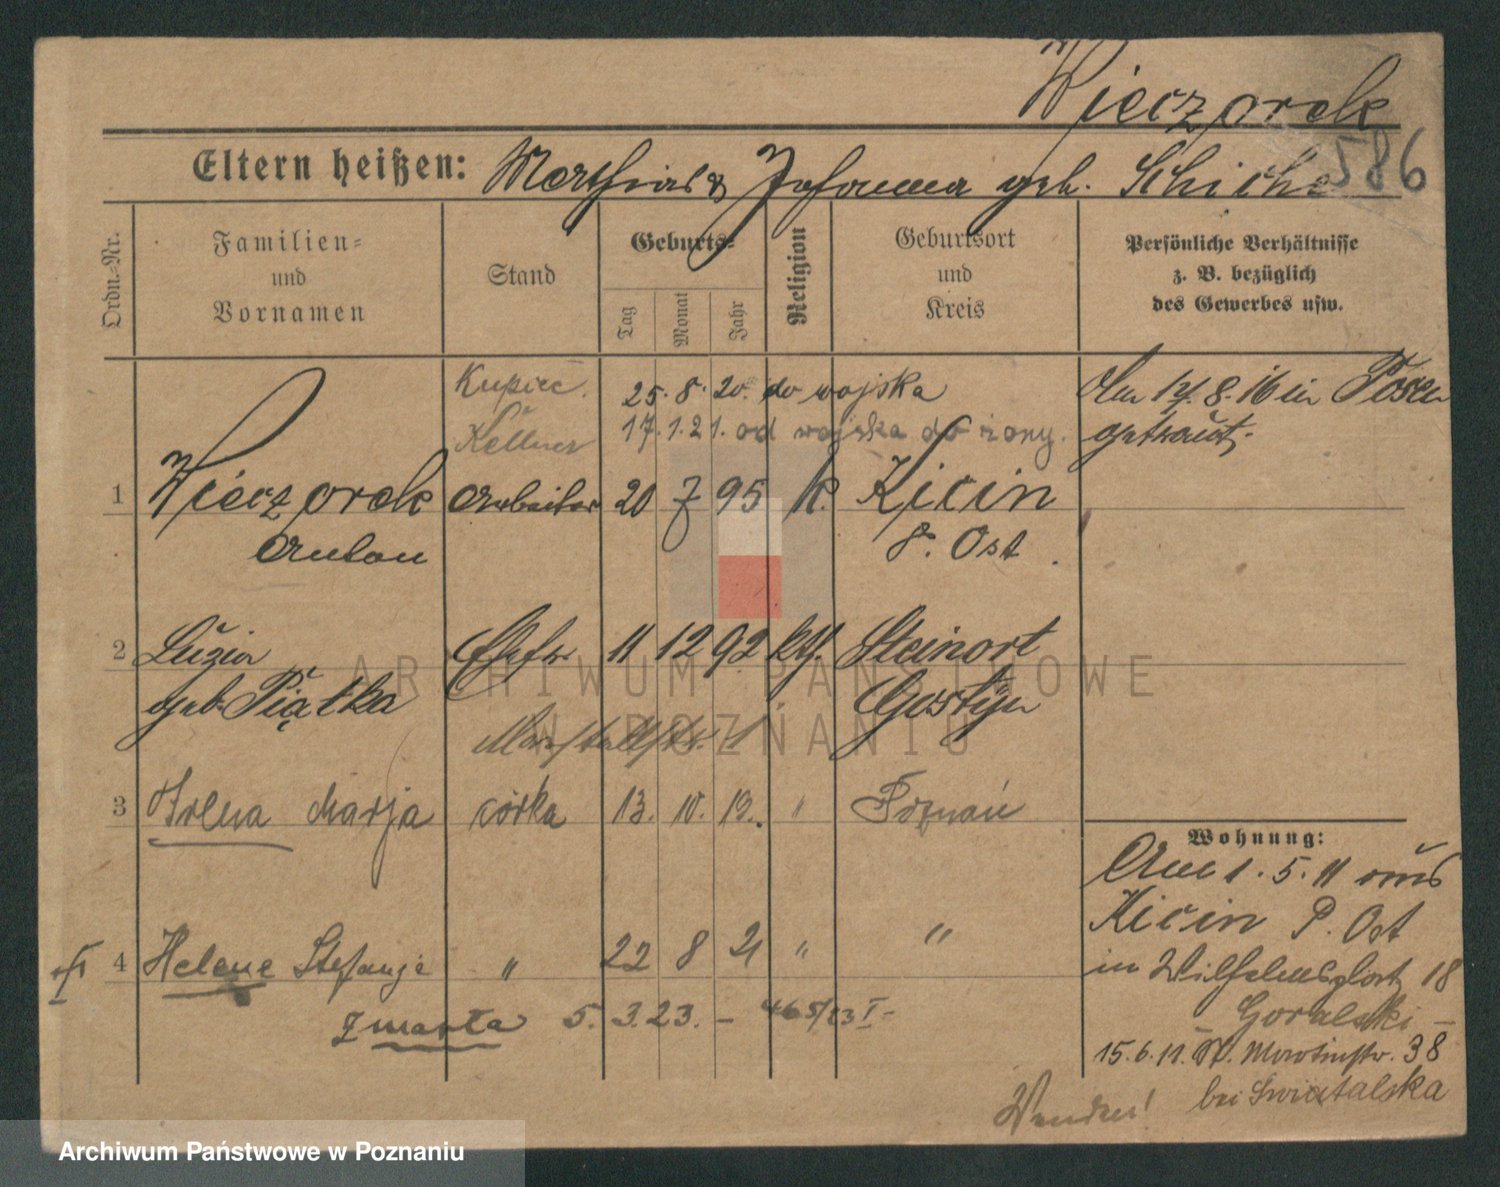 Wieczorek
586
Eltern heißen: Mathias & Johanna geb. Schicha
Ordn.-Nr.
Familien-
und
Vornamen
Stand
Geburts-
Tag
Monat
Jahr
Religion
Geburtsort
und
Kreis
Persönliche Verhältnisse
z. B. bezüglich
des Gewerbes usw.
Kupiec. 25. 8. 20. do wojska
Kellner 17. 1. 21. od wojska do żony.
Am 12. 8. 16 in Posen
getraut.
1 Wieczorek Arbeiter 20 7 95 k. Kicin
Anton P. Ost
2 Luzia Ehefr. 11 12 92 kth. Steinort
geb. Piątka Gostyn
Marstallstr. 1
3 Irena Marja córka 13. 10. 19. " Poznań
4 Helene Stefanja " 22 8 21 " "
zmarła 5. 3. 23. – 465/23 I -
Wohnung:
Am 1. 5. 11 aus
Kicin P. Ost
in Wilhelmsplatz 18
Goralski –
15. 6. 11. St. Martinstr. 38
bei Swiatalska
Wenden!
ARCHIWUM PAŃSTWOWE
W POZNANIU
Archiwum Państwowe w Poznaniu